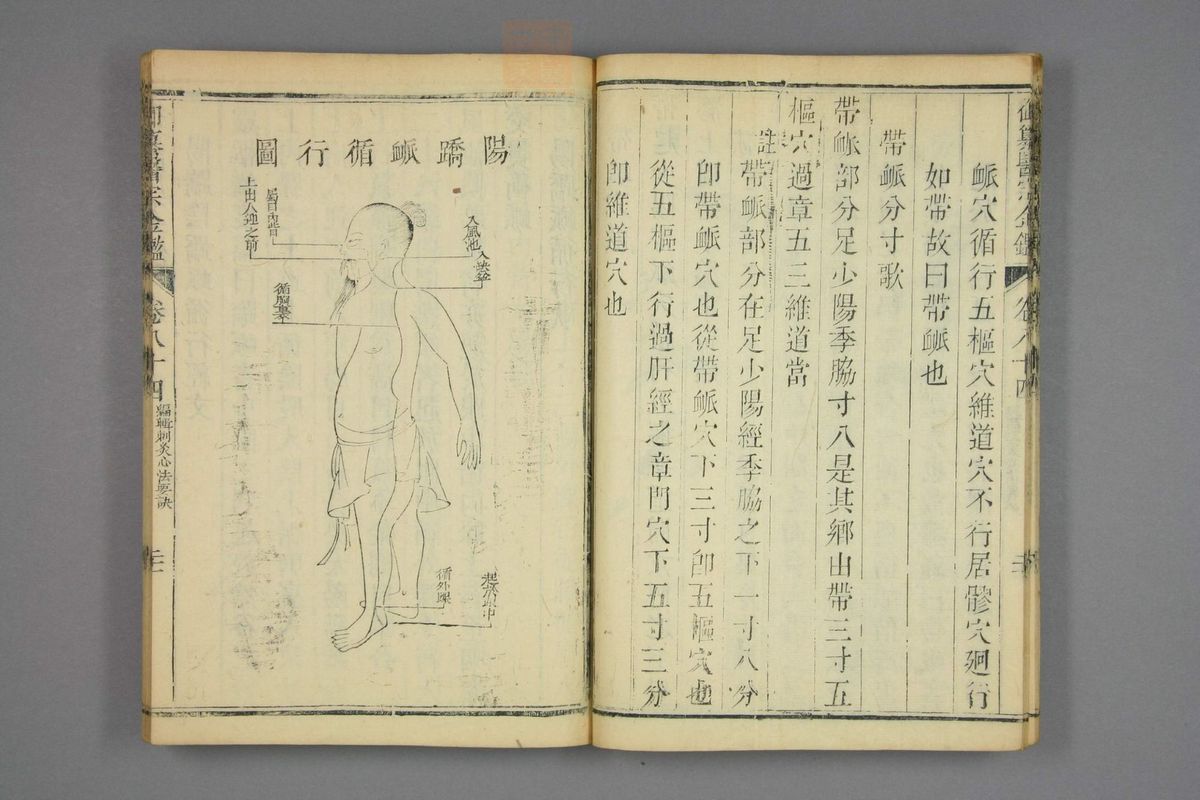 脈穴循行五樞穴維道穴不行居髎穴廻行
如帶故曰帶脈也
帶脈分寸歌
帶脈部分足少陽季脇寸八是其鄉由帶三寸五
樞穴過章五三維道當
註帶脈部分在足少陽經季脇之下一寸八分
卽帶脈穴也從帶脈穴下三寸卽五樞穴也
從五樞下行過肝經之章門穴下五寸三分
卽維道穴也
陽蹻脈循行圖
入風池
入缺盆
屬目內眥
上出人迎之前
循胸
循外踝
起於跟中
御纂醫宗金鑑
卷八十四
編輯刺灸心法要訣
御纂醫宗金鑑
卷八十四